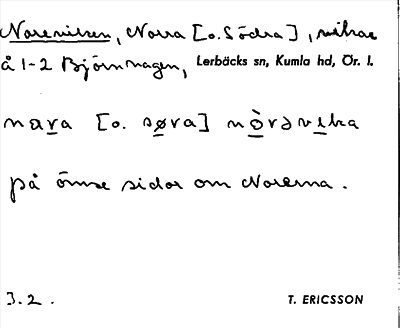 Noreviken, Norra [o. Södra], vikar
å 1-2 Björnhagen, Lerbäcks sn, Kumla hd, Ör. l.
nora [o. søra] nòrəvika
på ömse sidor om Norerna.
3.2.
T. ERICSSON